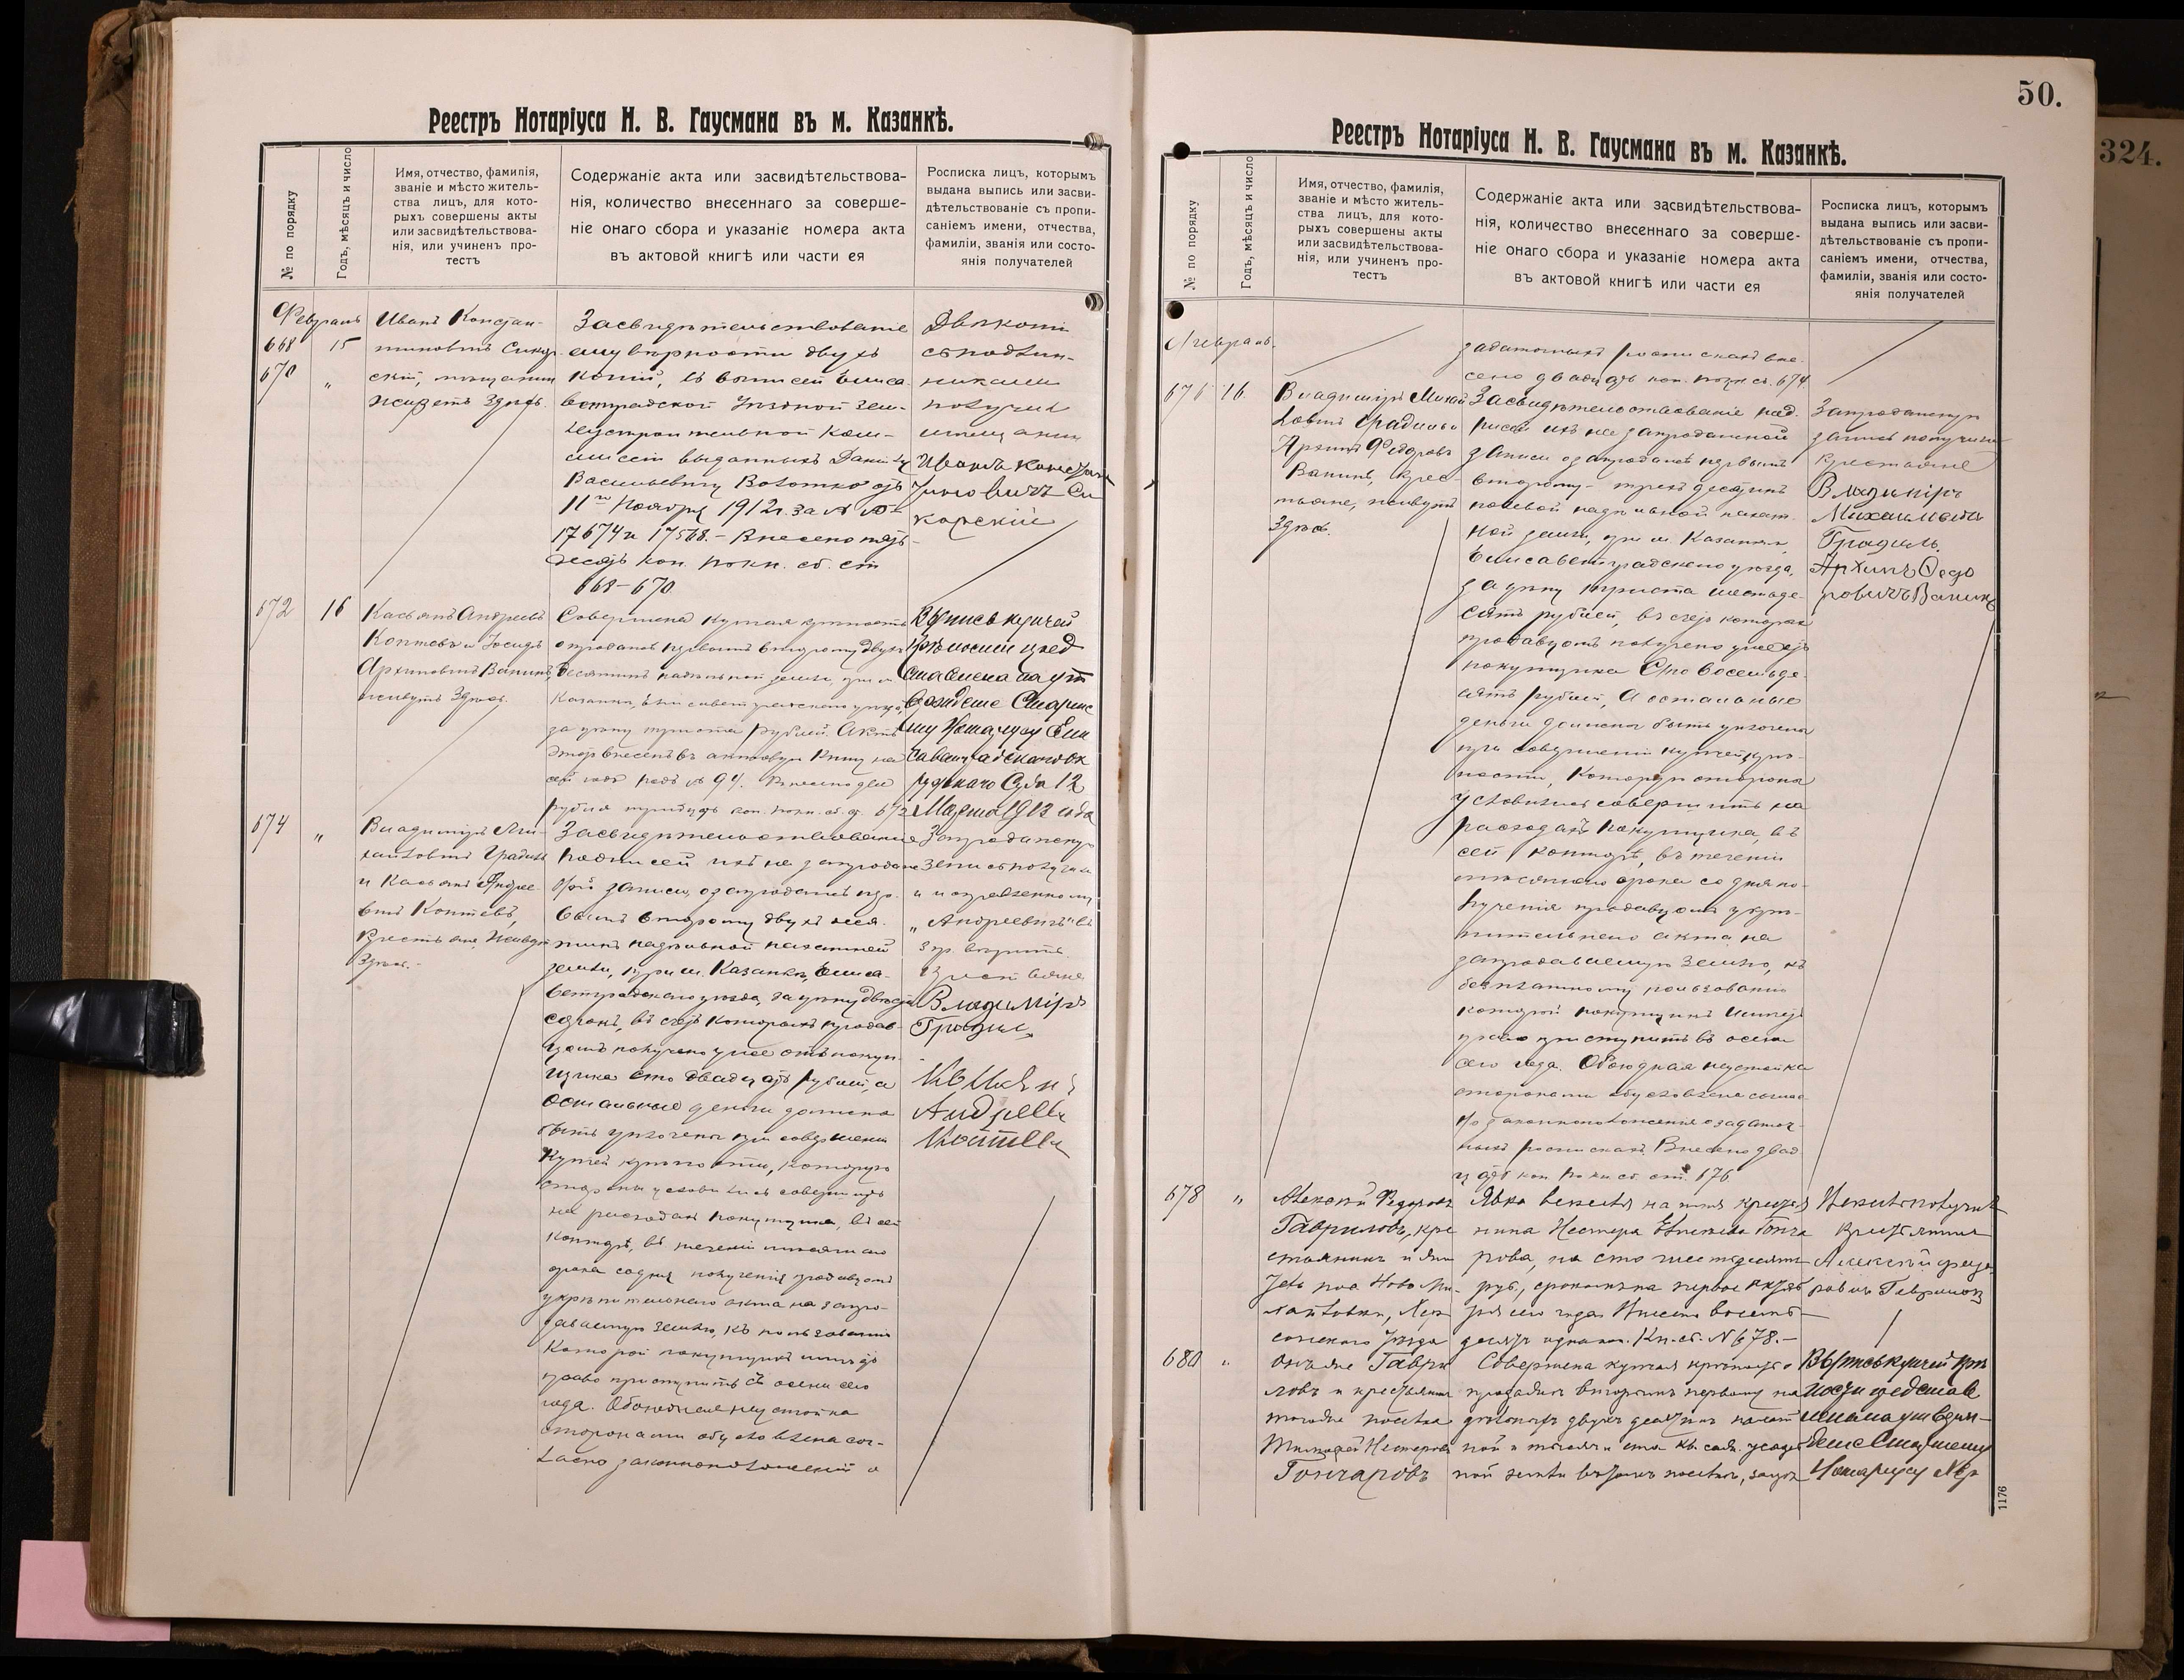 Реестръ Нотаріуса Н. В. Гаусмана въ м. Казанкѣ.
№ по порядку
Годъ, мѣсяцъ и число
Имя, отчество, фамилія,
званіе и мѣсто житель-
ства лицъ, для кото-
рыхъ совершены акты
или засвидѣтельствова-
нія, или учиненъ про-
тестъ
Содержаніе акта или засвидѣтельствова-
нія, количество внесеннаго за соверше-
ніе онаго сбора и указаніе номера акта
въ актовой книгѣ или части ея
Росписка лицъ, которымъ
выдана выпись или засви-
дѣтельствованіе съ пропи-
саніемъ имени, отчества,
фамиліи, званія или состо-
янія получателей
Февраль
668 15
670 "
Иванъ Констан-
тиновичъ
скій, мѣщанин
живетъ Здѣсь.
Засвидѣтельствованіе
ему вѣрности двухъ
копій, съ выписей Елиса-
ветградской Уѣздной Зем-
леустроительной Ком-
миссіи выданныхъ
Васильевичу
11го Ноября 1912 г. за №
17674 и 17568. – Внесено
десятъ коп. по кн. сб. ст
668–670.
Двѣ копіи
съ подлин-
никами
получилъ
мѣщанин
Иванъ Констан
тиновичъ Си
корскій
672 16
Касьянъ Андреевъ
Коптевъ и
Архиповичъ Ванинъ,
живутъ Здѣсь.
Совершена купчая крѣпость
о продажѣ первымъ второму двухъ
десятинъ надѣльной земли, при м
Казанкѣ, Елисаветградскаго уѣзда,
за цѣну триста рублей. Актъ
этотъ внесенъ въ актовую книгу на
сей годъ подъ № 94. Внесено два
рубля тридцать коп. по кн. сб. ст. 672
Выпись купчей
крѣпости пред
ставлена на ут
вержденіе Старше
му Нотаріусу Ели
саветградскаго Ок
ружнаго Суда 12
Марта 1913 года
674 "
Владиміръ Ми-
хайловичъ
и Касьянъ Андрее-
вичъ Коптевъ,
Крестьяне, живутъ
Здѣсь.-
Засвидѣтельствованіе
подписей ихъ на запродаж-
ной записи, о запродажѣ пер-
вымъ второму двухъ деся-
тинъ надѣльной пахатной
земли, при м. Казанкѣ, Елиса-
ветградскаго уѣзда, за цѣну двѣсти
сорокъ, въ счетъ которыхъ продав-
цомъ получено уже отъ покуп-
щика сто двадцать рублей, а
остальные деньги должны
быть уплочены при совершеніи
купчей крѣпости, которую
стороны условились совершить
на расходахъ покупщика, въ сей
конторѣ, въ теченіи
срока со дня полученія продавцомъ
укрѣпительнаго акта на запро-
даваемую землю, къ пользованію
которой покупщикъ имѣетъ
право приступить съ осени сего
года. Обоюдная неустойка
сторонами обусловлена сог-
ласно законоположеній о
Запродажную
запись получили
и исправленному
„Андреевичъ" въ
3 гр. вѣрить.
Крестьяне
Владиміръ
Андреевъ
50.
Реестръ Нотаріуса Н. В. Гаусмана въ м. Казанкѣ.
№ по порядку
Годъ, мѣсяцъ и число
Имя, отчество, фамилія,
званіе и мѣсто житель-
ства лицъ, для кото-
рыхъ совершены акты
или засвидѣтельствова-
нія, или учиненъ про-
тестъ
Содержаніе акта или засвидѣтельствова-
нія, количество внесеннаго за соверше-
ніе онаго сбора и указаніе номера акта
въ актовой книгѣ или части ея
Росписка лицъ, которымъ
выдана выпись или засви-
дѣтельствованіе съ пропи-
саніемъ имени, отчества,
фамиліи, званія или состо-
янія получателей
Февраль.
задаточныхъ роспискахъ вне-
сено двадцать коп. по кн. сб. 674
676 16.
Владиміръ Михай
ловичъ
Архипъ Федоровъ
Ванинъ, крес-
тьяне, живутъ
Здѣсь.
Засвидѣтельствованіе под-
писей ихъ на запродажной
записи о запродажѣ первымъ
второму – трехъ десятинъ
полевой надѣльной пахат-
ной земли, при м. Казанкѣ,
Елисаветградскаго уѣзда,
за цѣну триста шестьде-
сятъ рублей, въ счетъ которыхъ
продавцомъ получено уже отъ
покупщика Сто восемьде-
сятъ рублей, а остальные
деньги должны быть уплочены
при совершеніи купчей крѣ-
пости, которую стороны
условились совершить на
расходахъ покупщика, въ
сей конторѣ, въ теченіи
срока со дня по-
лученія продавцомъ укрѣ-
пительнаго акта на
запродаваемую землю, къ
безплатному пользованію
которой покупщикъ имѣетъ
право приступить въ осени
сего года. Обоюдная неустойка
сторонами обусловлена соглас-
но законоположенію о задаточ-
ныхъ роспискахъ. Внесено двад
цать коп по кн сб. ст. 676
Запродажную
запись получили
крестьяне
Владиміръ
Михайловичъ
Архипъ Федо
ровичъ Ванинъ
678 "
Алексѣй Федоровъ
Гавриловъ, кре
стьянинъ и жи
Ново-Ми-
хайловки, Хер
сонскаго уѣзда
Явка векселя на имя крестья
нина Нестера Гонча
рова, на сто шестьдесятъ
руб., срокомъ на первое октяб
ря сего года. Внесено восемь-
десятъ одна коп. Кн. сб. № 678.–
Вексель получилъ
Крестьянинъ
Алексѣй Федо
ровичъ Гавриловъ
680 "
Онъ же Гаври
ловъ и крестьянин
того же поселка
Тимофей Нестеровъ
Гончаровъ
Совершена купчая крѣпость о
продажѣ вторымъ первому на
двухъ десятинъ пахат
ной и
ной земли въ томъ поселкѣ, за
Выпись купчей крѣ
пости представ
лена на утверж-
деніе Старшему
Нотаріусу Хер
1176